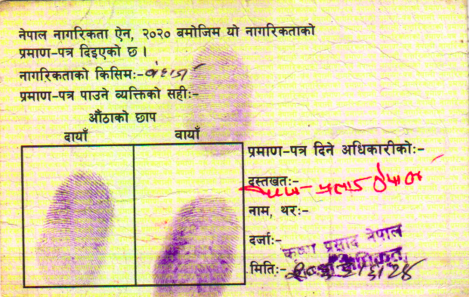 नेपाल नागरिकता ऐन, २०२० बमोजिम यो नागरिकताको
प्रमाण-पत्र दिइएको छ ।
नागरिकताको किसिम:- वंशज
प्रमाण-पत्र पाउने व्यक्तिको सही:-
औंठाको छाप
दायाँ बायाँ
प्रमाण-पत्र दिने अधिकारीको:-
दस्तखत:-
नाम, थर:-
दर्जा:- कृष्ण प्रसाद नेपाल
मिति:-